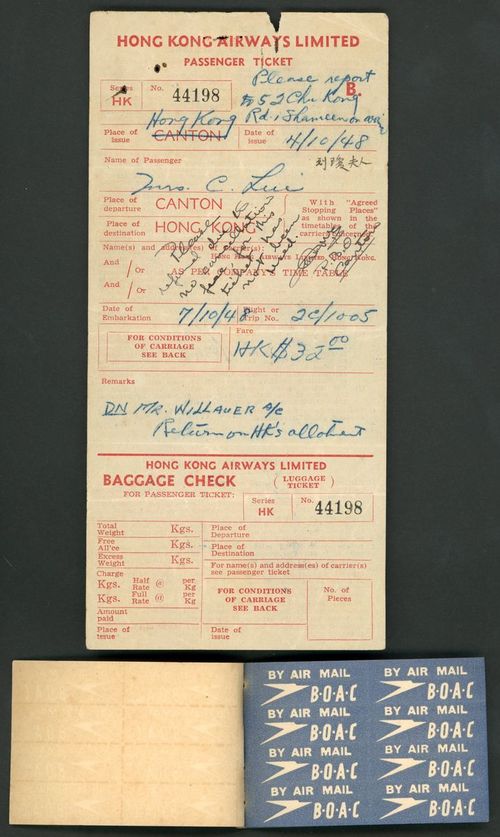 HONG KONG AIRWAYS LIMITED
PASSENGER TICKET
Please report
Series HK No. 44198 B.
52 Chu Kong
Rd, Shameen on
Hong Kong
Place of issue CANTON Date of issue 4/10/48
Name of Passenger
Mrs. C. Lui
Place of departure CANTON
Place of destination HONG KONG
With "Agreed Stopping Places" as shown in the timetables of the carriers concerned
Please refund due to
no cancellation
has
ticket
been
used
Canton
Name(s) and address(es) of carrier(s):
HONG KONG AIRWAYS LIMITED, HONG KONG.
And / Or
AS PER COMPANY'S TIME TABLE
And / Or
Date of Embarkation 7/10/48 Flight or Trip No. 2C/1005
FOR CONDITIONS OF CARRIAGE SEE BACK
Fare
HK $32.00
Remarks
DN MR. WILLAUER a/c
Return on HK's allotment
HONG KONG AIRWAYS LIMITED
BAGGAGE CHECK (LUGGAGE TICKET)
FOR PASSENGER TICKET:
Series HK No. 44198
Total Weight Kgs.
Place of Departure
Free All'ce Kgs.
Place of Destination
Excess Weight Kgs.
For name(s) and address(es) of carrier(s) see passenger ticket
Charge
Kgs. Half Rate @ per Kg
Kgs. Full Rate @ per Kg
FOR CONDITIONS OF CARRIAGE SEE BACK
No. of Pieces
Amount paid
Place of issue
Date of issue
BY AIR MAIL BY AIR MAIL
B·O·A·C B·O·A·C
BY AIR MAIL BY AIR MAIL
B·O·A·C B·O·A·C
BY AIR MAIL BY AIR MAIL
B·O·A·C B·O·A·C
BY AIR MAIL BY AIR MAIL
B·O·A·C B·O·A·C